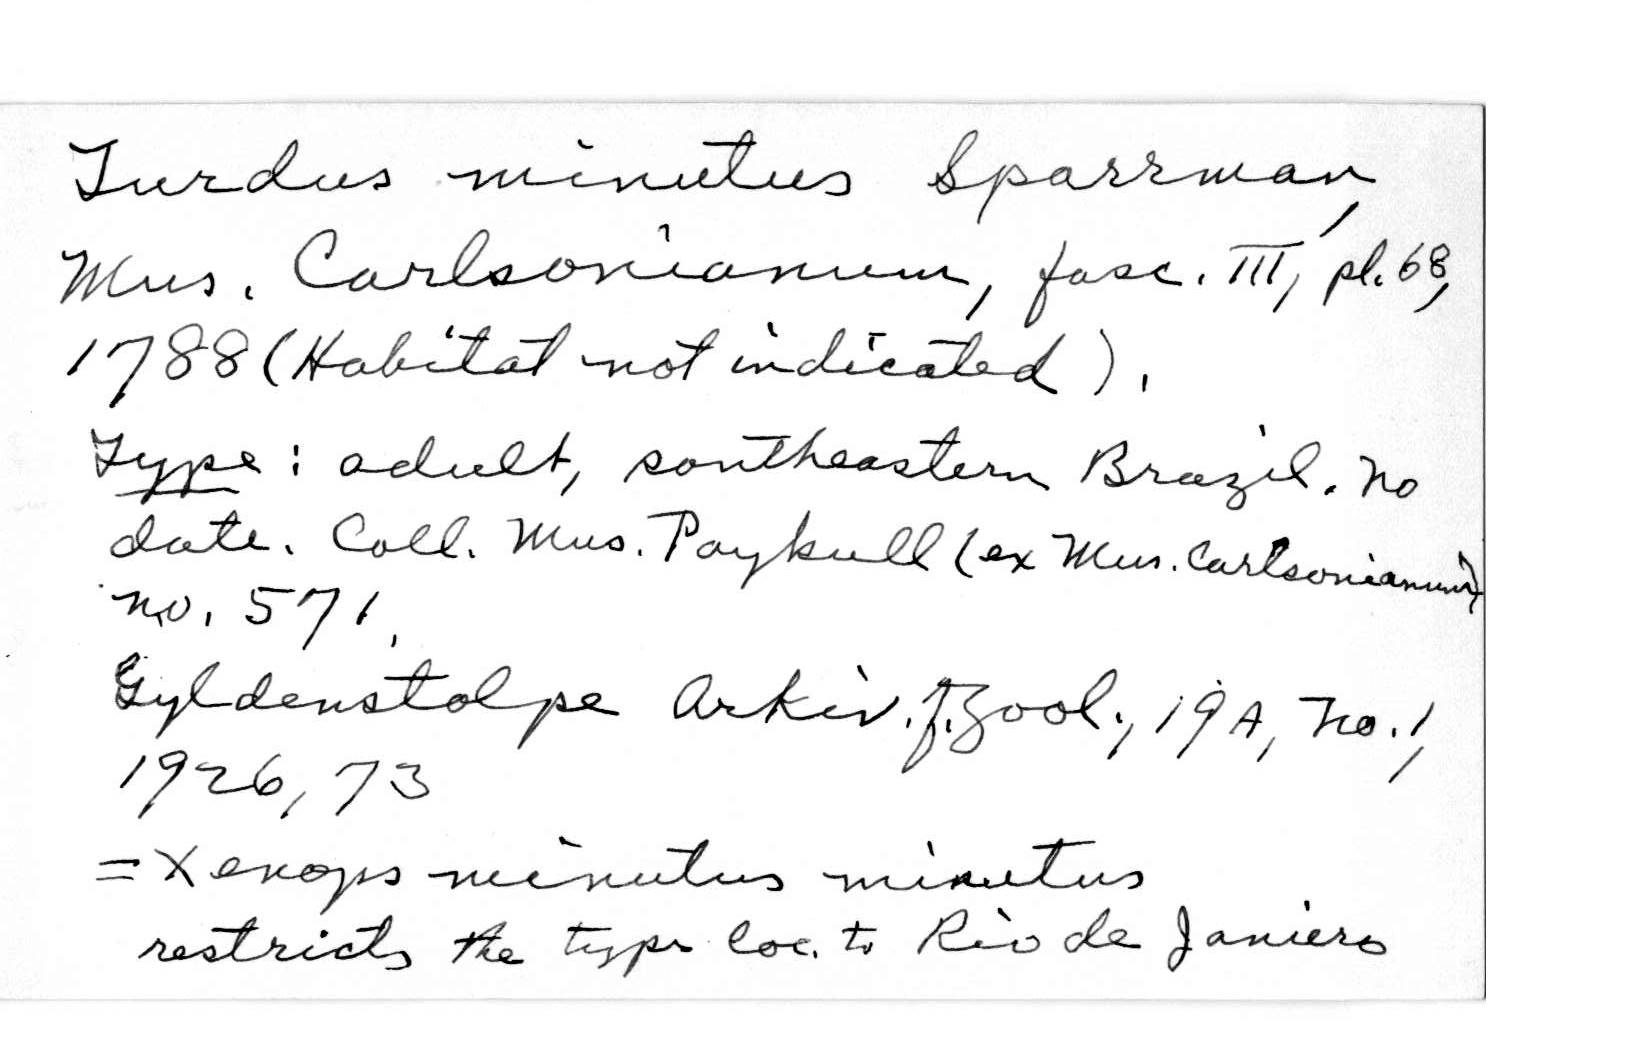 Turdus minutus Sparrman,
Mus. Carlsonianum, fasc. III, pl. 68,
1788 (Habitat not indicated).
Type: adult, southeastern Brazil. No
date. Coll. Mus. Paykull (ex Mus. Carlsonianum)
no. 571.
Gyldenstolpe Arkiv. f. Zool., 19A, No. 1,
1926, 73
= Xenops minutus minutus
restricts the type loc. to Rio de Janiero